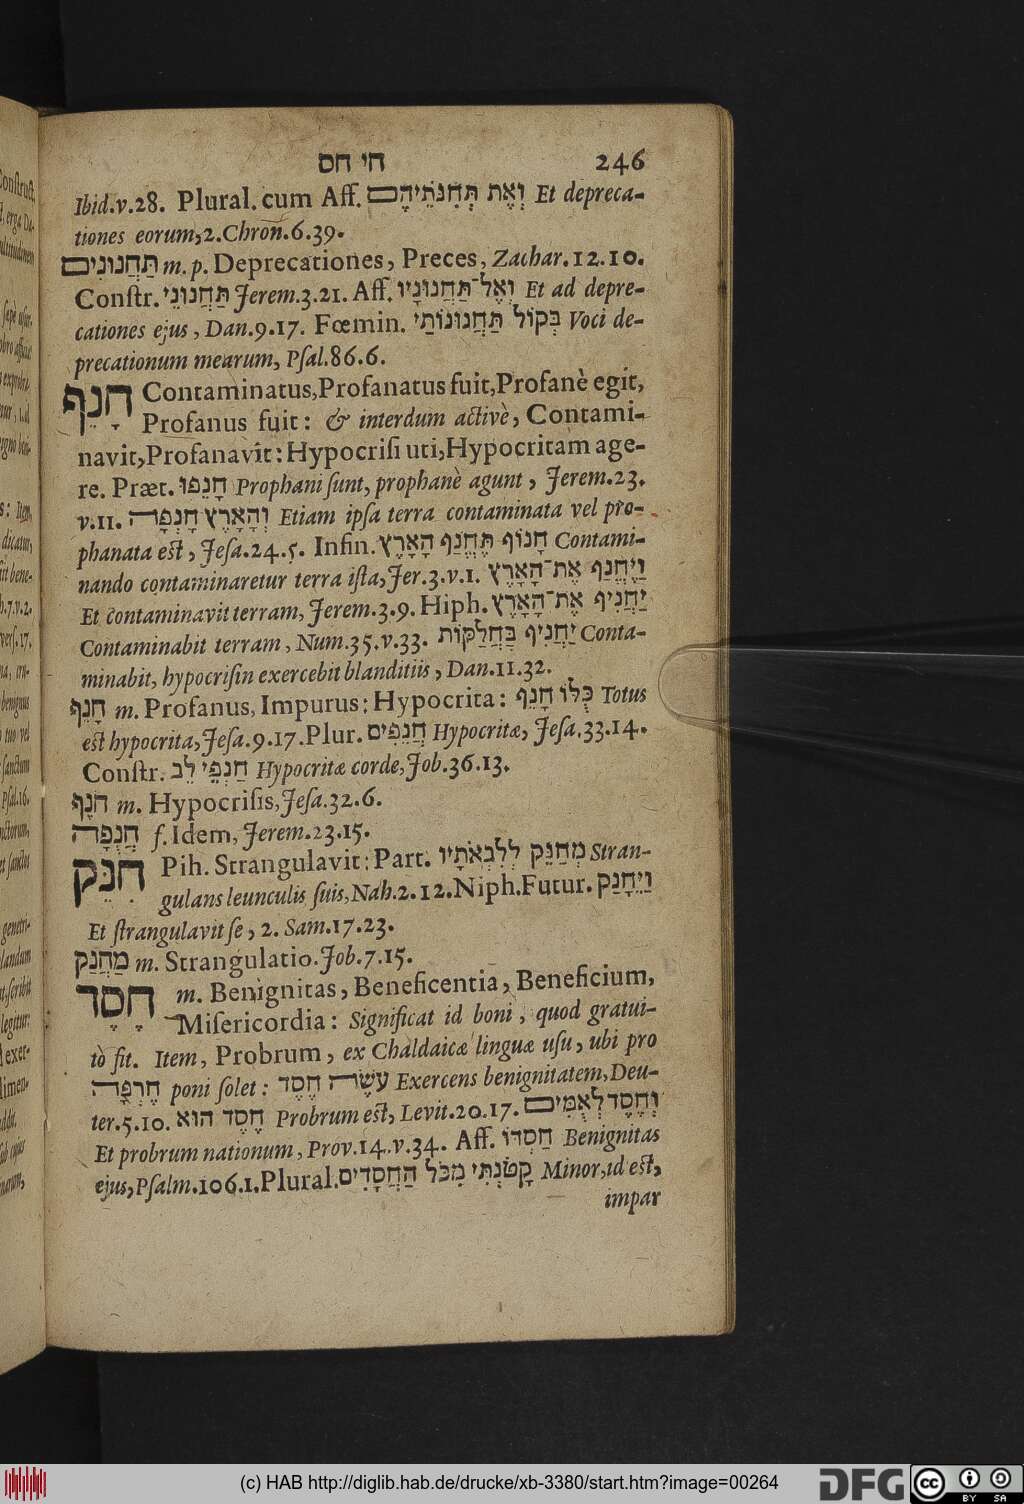 חי חס 246
Ibid.v.28. Plural. cum Aff. וְאֶת תְּחִנֹּתֵיהֶם Et depreca-
tiones eorum, 2. Chron. 6.39.
תַּחֲנוּנִים m. p. Deprecationes, Preces, Zachar. 12.10.
Conſtr. תַּחֲנוּנֵי Jerem. 3.21. Aff. וְאֶל־תַּחֲנוּנָיו Et ad depre-
cationes ejus, Dan. 9.17. Fœmin. בְּקוֹל תַּחֲנוּנוֹתַי Voci de-
precationum mearum, Pſal. 86.6.
חָנֵף Contaminatus, Profanatus fuit, Profanè egit,
Profanus fuit: & interdum activè, Contami-
navit, Profanavit: Hypocriſi uti, Hypocritam age-
re. Præt. חָנֵפוּ Prophani ſunt, prophanè agunt, Jerem. 23.
v.11. וְהָאָרֶץ חָנְפָה Etiam ipſa terra contaminata vel pro-
phanata eſt, Jeſa. 24.5. Infin. חָנוֹף תֶּחֱנַף הָאָרֶץ Contami-
nando contaminaretur terra iſta, Jer. 3.v.1. וַיֶּחֱנַף אֶת־הָאָרֶץ
Et contaminavit terram, Jerem. 3.9. Hiph. יַחֲנִיף אֶת־הָאָרֶץ
Contaminabit terram, Num. 35.v.33. יַחֲנִיף בַּחֲלַקּוֹת Conta-
minabit, hypocriſin exercebit blanditiis, Dan. 11.32.
חָנֵף m. Profanus, Impurus: Hypocrita: כֻּלּוֹ חָנֵף Totus
eſt hypocrita, Jeſa. 9.17. Plur. חֲנֵפִים Hypocritæ, Jeſa. 33.14.
Conſtr. חַנְפֵי לֵב Hypocritæ corde, Job. 36.13.
חֹנֶף m. Hypocriſis, Jeſa. 32.6.
חֲנֻפָּה f. Idem, Jerem. 23.15.
חִנֵּק Pih. Strangulavit: Part. מְחַנֵּק לְלִבְאֹתָיו Stran-
gulans leunculis ſuis, Nah. 2.12. Niph. Futur. וַיֵּחָנַק
Et ſtrangulavit ſe, 2. Sam. 17.23.
מַחֲנַק m. Strangulatio. Job. 7.15.
חָסֶד m. Benignitas, Beneficentia, Beneficium,
Miſericordia: Significat id boni, quod gratui-
tò fit. Item, Probrum, ex Chaldaicæ linguæ uſu, ubi pro
חֶרְפָּה poni ſolet: עֹשֶׂה חֶסֶד Exercens benignitatem, Deu-
ter. 5.10. חֶסֶד הוּא Probrum eſt, Levit. 20.17. וְחֶסֶד לְאֻמִּים
Et probrum nationum, Prov. 14.v.34. Aff. חַסְדּוֹ Benignitas
ejus, Pſalm. 106.1. Plural. קָטֹנְתִּי מִכֹּל הַחֲסָדִים Minor, id eſt,
impar
(c) HAB http://diglib.hab.de/drucke/xb-3380/start.htm?image=00264
DFG
cc BY SA